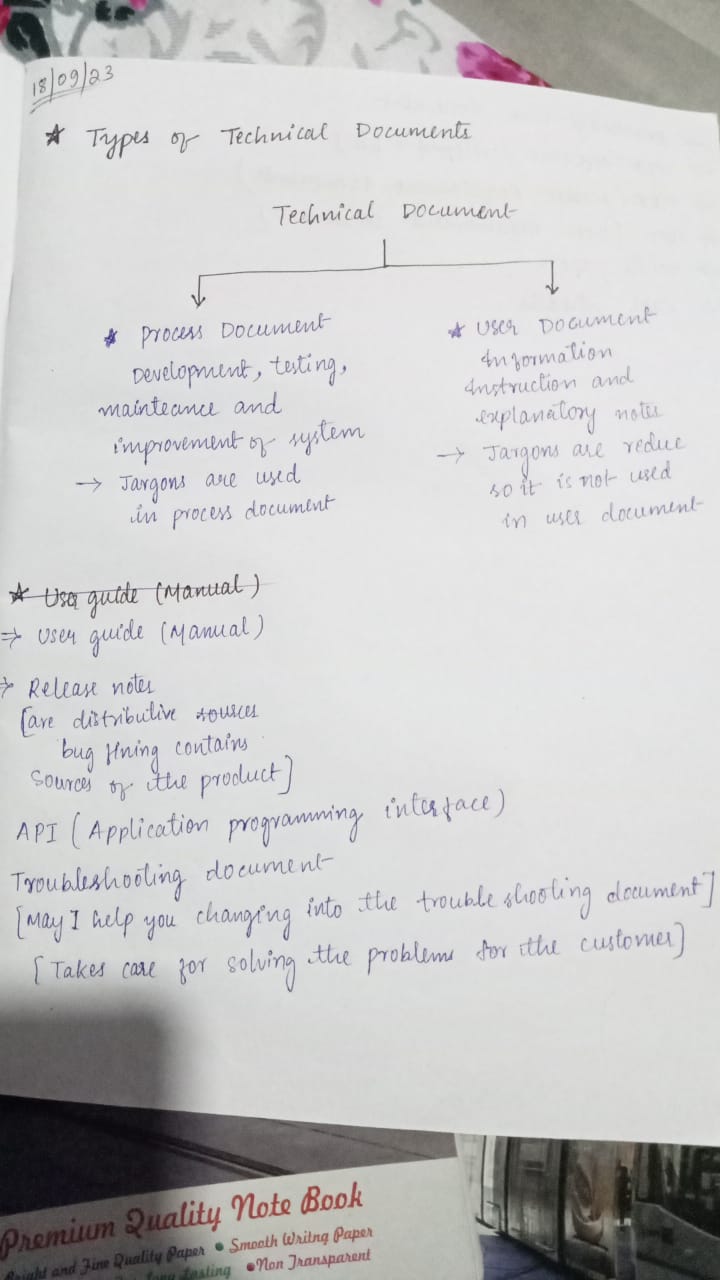 18/09/23
* Types of Technical Documents
Technical Document
* Process Document
Development, testing,
mainteance and
improvement of system
→ Jargons are used
in process document
* User Document
Information
Instruction and
explanatory notes
→ Jargons are reduce
so it is not used
in user document
* Use guide (Manual)
⇒ User guide (Manual)
→ Release notes
[are distributive sources
bug fining contains
Sources of the product]
API (Application programming interface)
Troubleshooting document
[May I help you changing into the trouble shooting document]
[Takes care for solving the problems for the customer]
Premium Quality Note Book
Bright and Fine Quality Paper • Smooth Writng Paper
Long Lasting • Non Transparent